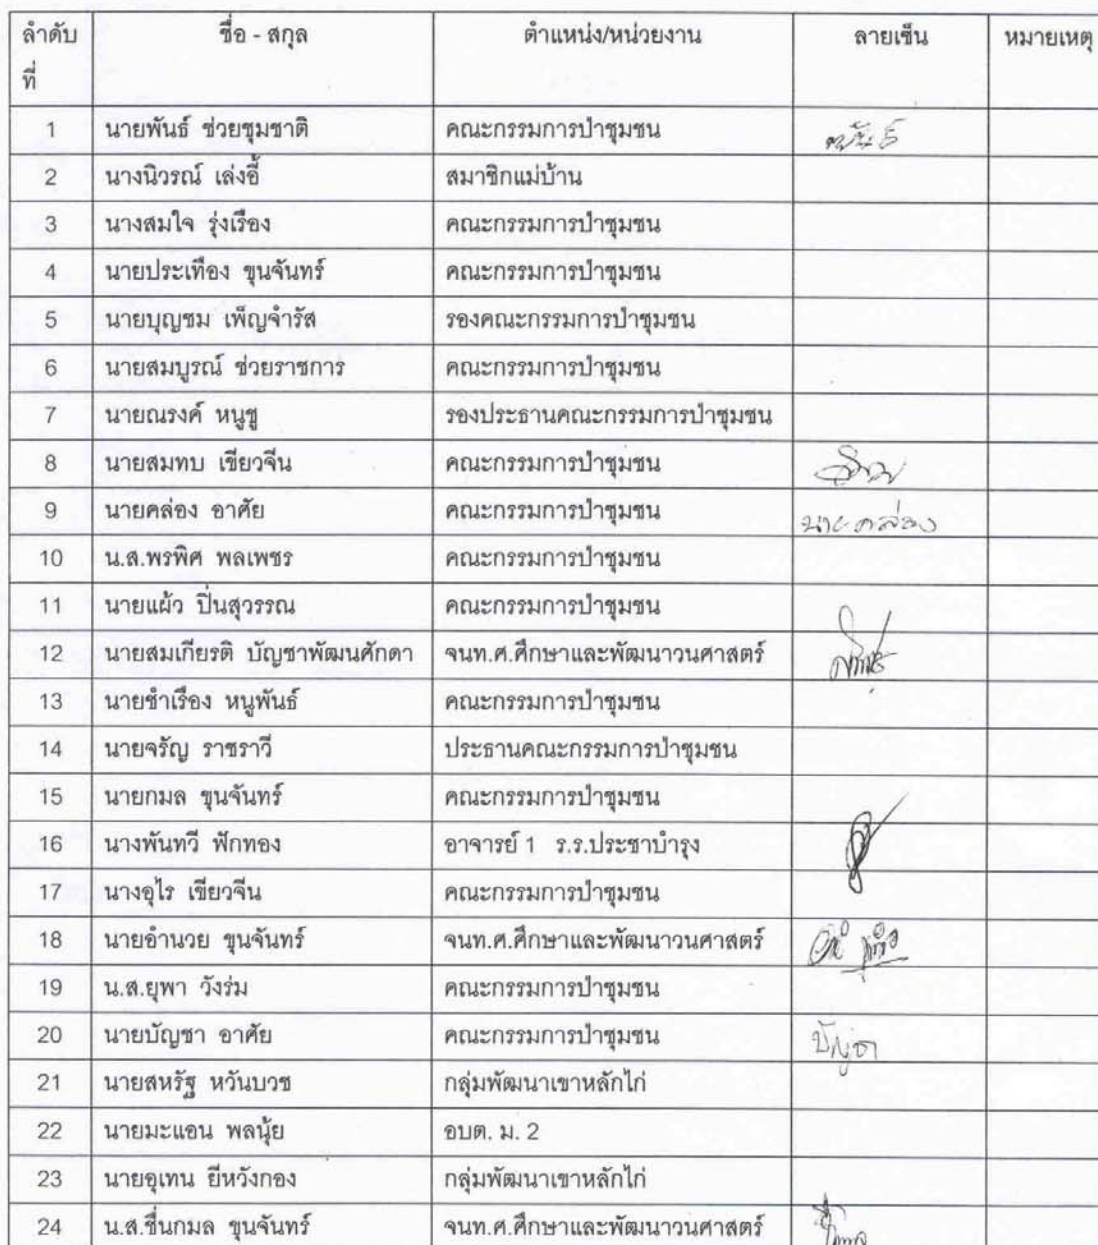 ลำดับที่ ชื่อ - สกุล ตำแหน่ง/หน่วยงาน ลายเซ็น หมายเหตุ
1 นายพันธ์ ช่วยชุมชาติ คณะกรรมการป่าชุมชน พันธ์
2 นางนิวรณ์ เล่งอี้ สมาชิกแม่บ้าน
3 นางสมใจ รุ่งเรือง คณะกรรมการป่าชุมชน
4 นายประเทือง ขุนจันทร์ คณะกรรมการป่าชุมชน
5 นายบุญชม เพ็ญจำรัส รองคณะกรรมการป่าชุมชน
6 นายสมบูรณ์ ช่วยราชการ คณะกรรมการป่าชุมชน
7 นายณรงค์ หนูชู รองประธานคณะกรรมการป่าชุมชน
8 นายสมทบ เขียวจีน คณะกรรมการป่าชุมชน
9 นายคล่อง อาศัย คณะกรรมการป่าชุมชน นายคล่อง
10 น.ส.พรพิศ พลเพชร คณะกรรมการป่าชุมชน
11 นายแผ้ว ปิ่นสุวรรณ คณะกรรมการป่าชุมชน
12 นายสมเกียรติ บัญชาพัฒนศักดา จนท.ศ.ศึกษาและพัฒนาวนศาสตร์
13 นายชำเรือง หนูพันธ์ คณะกรรมการป่าชุมชน
14 นายจรัญ ราชราวี ประธานคณะกรรมการป่าชุมชน
15 นายกมล ขุนจันทร์ คณะกรรมการป่าชุมชน
16 นางพันทวี ฟักทอง อาจารย์ 1 ร.ร.ประชาบำรุง
17 นางอุไร เขียวจีน คณะกรรมการป่าชุมชน
18 นายอำนวย ขุนจันทร์ จนท.ศ.ศึกษาและพัฒนาวนศาสตร์
19 น.ส.ยุพา วังร่ม คณะกรรมการป่าชุมชน
20 นายบัญชา อาศัย คณะกรรมการป่าชุมชน บัญชา
21 นายสหรัฐ หวันบวช กลุ่มพัฒนาเขาหลักไก่
22 นายมะแอน พลนุ้ย อบต. ม. 2
23 นายอุเทน ยีหวังกอง กลุ่มพัฒนาเขาหลักไก่
24 น.ส.ชื่นกมล ขุนจันทร์ จนท.ศ.ศึกษาและพัฒนาวนศาสตร์